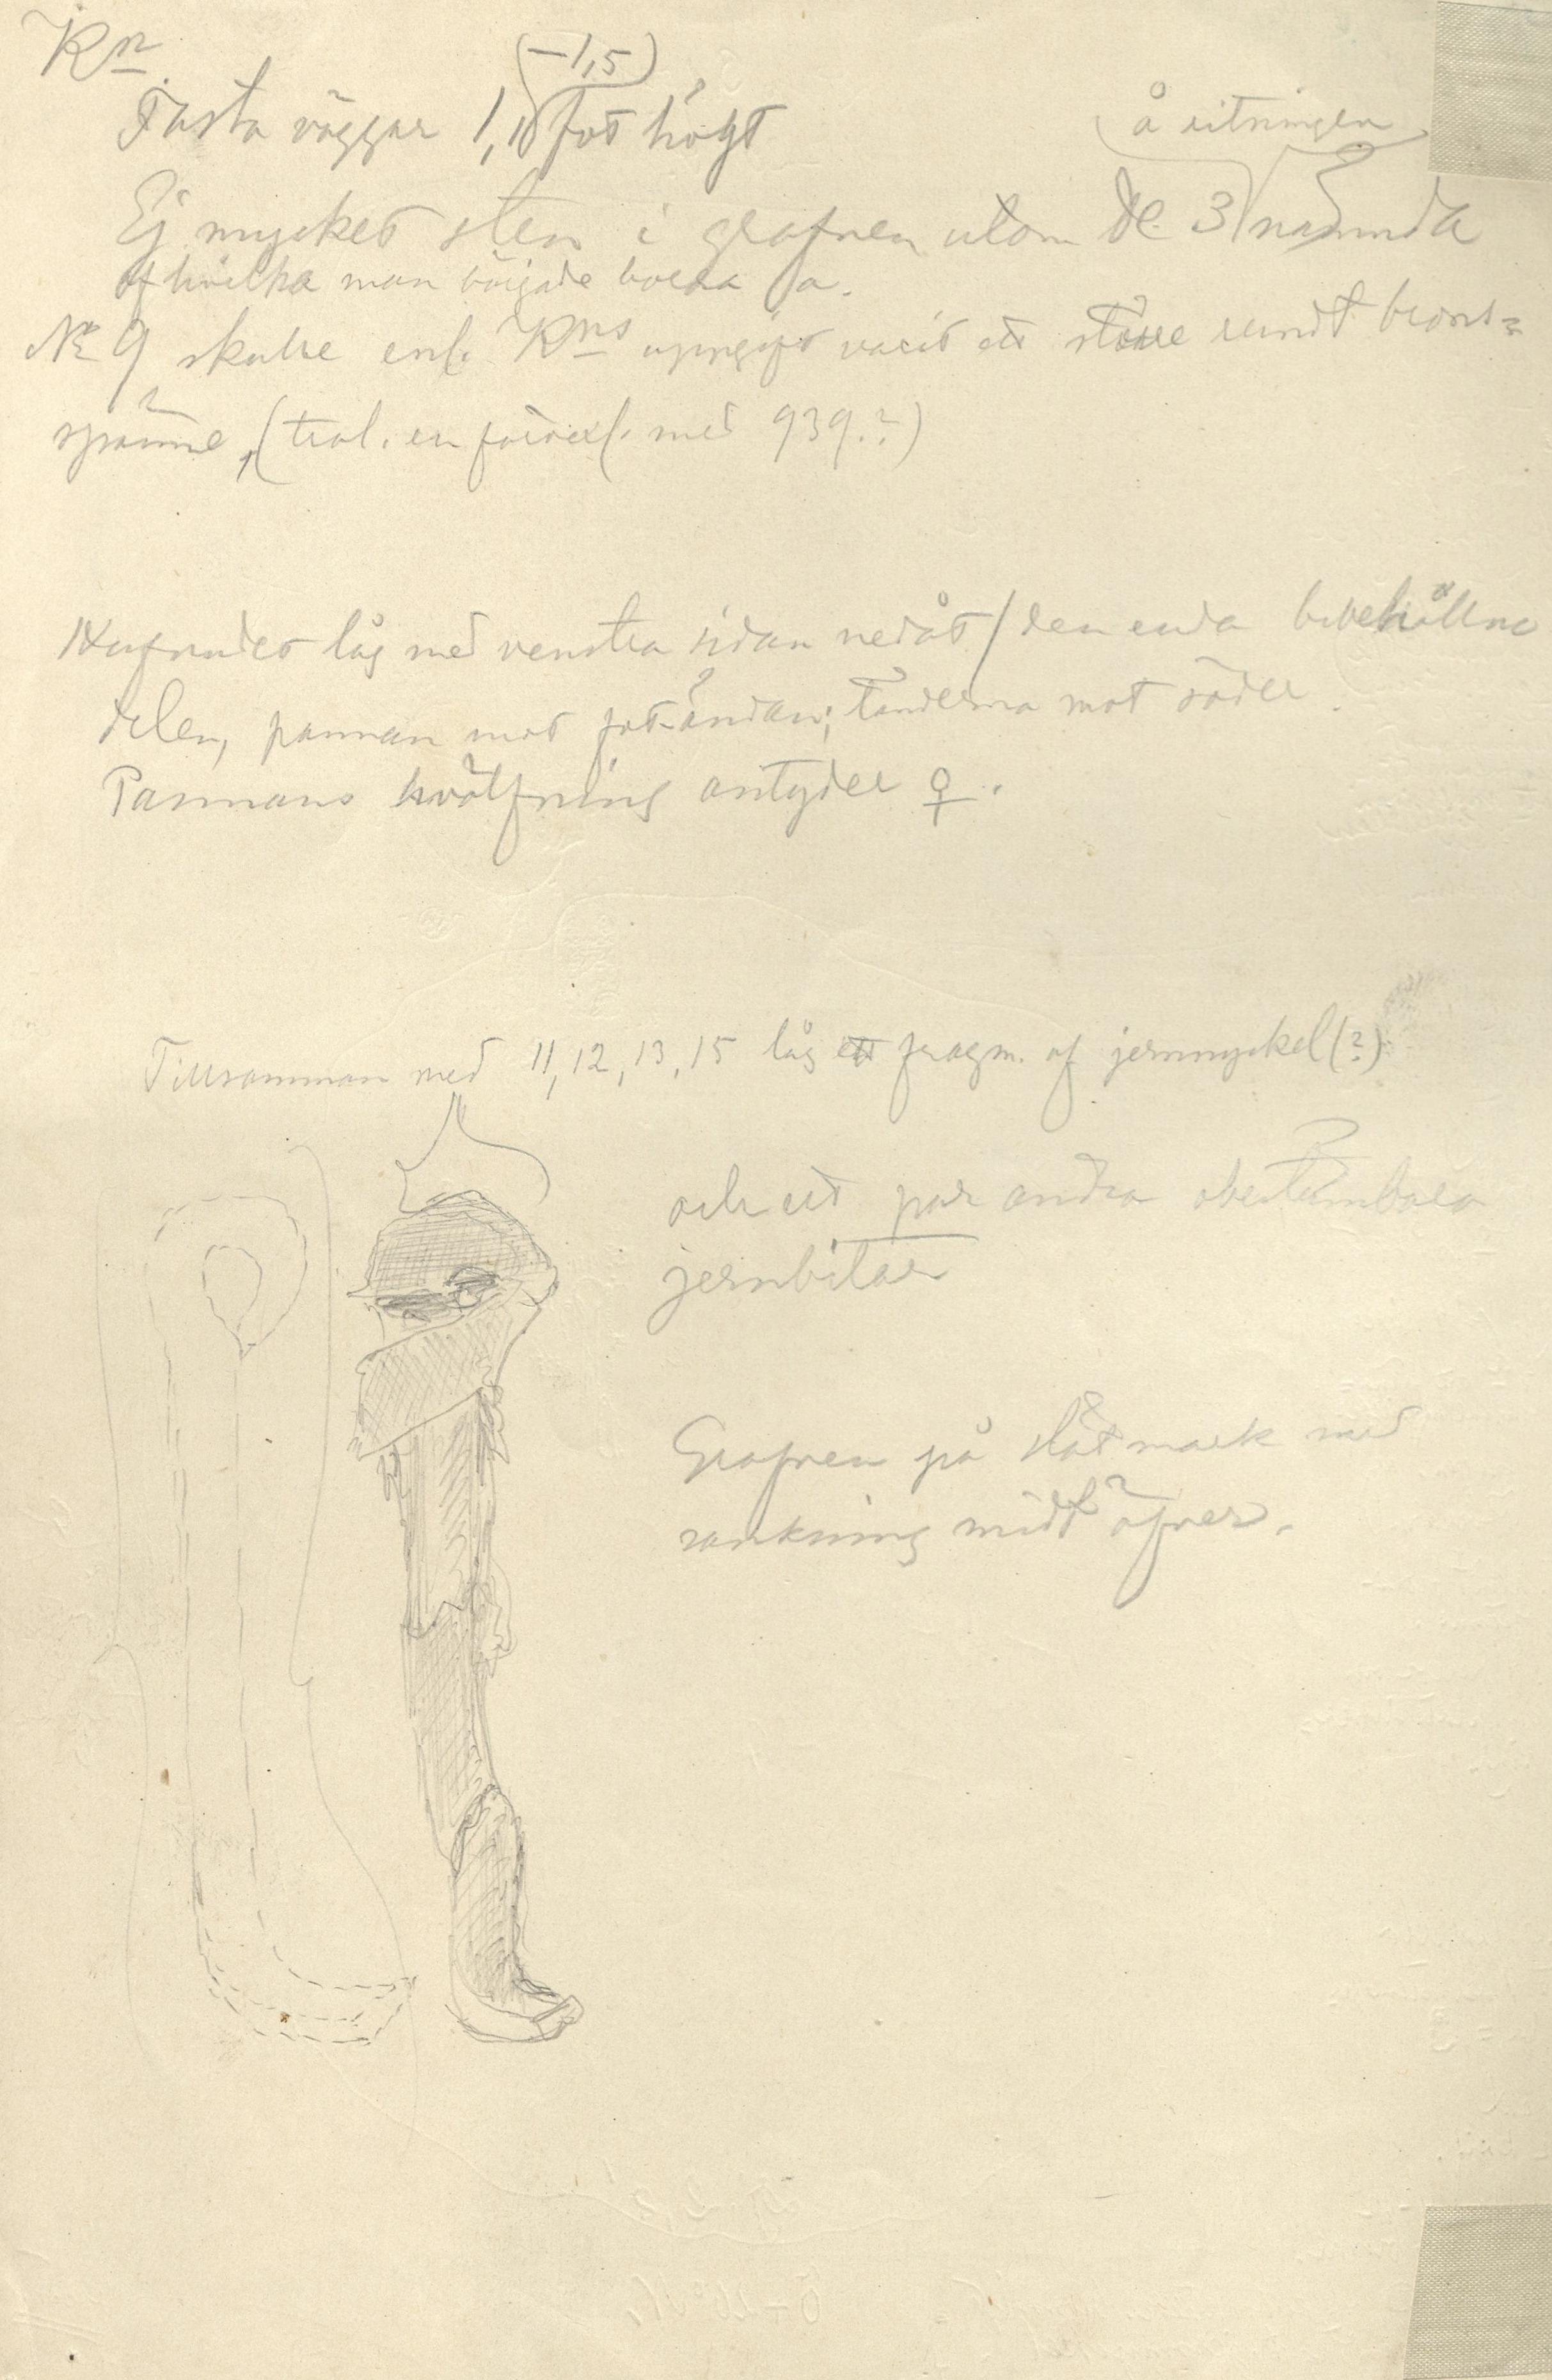 Kn
Fasta väggar 1,1 (–1,5) fot högt
Ej mycket sten i grafven utom de 3 å ritningen nämnda
af hvilka man började börja på.
No 9 skulle enl. Kns uppgift varit ett större rundt brons-
spänne, (trol. en förvexl. med 939.?)
Hufvudet låg med venstra sidan nedåt / den enda bibehållna
delen, pannan mot fot-ändan; tänderna mot söder.
Pannans hvälfning antyder ♀.
Tillsamman med 11, 12, 13, 15 låg ett fragm. af jernnyckel (?)
och ett par andra obestämbara
jernbitar
Grafven på slät mark med
sänkning midt öfver.